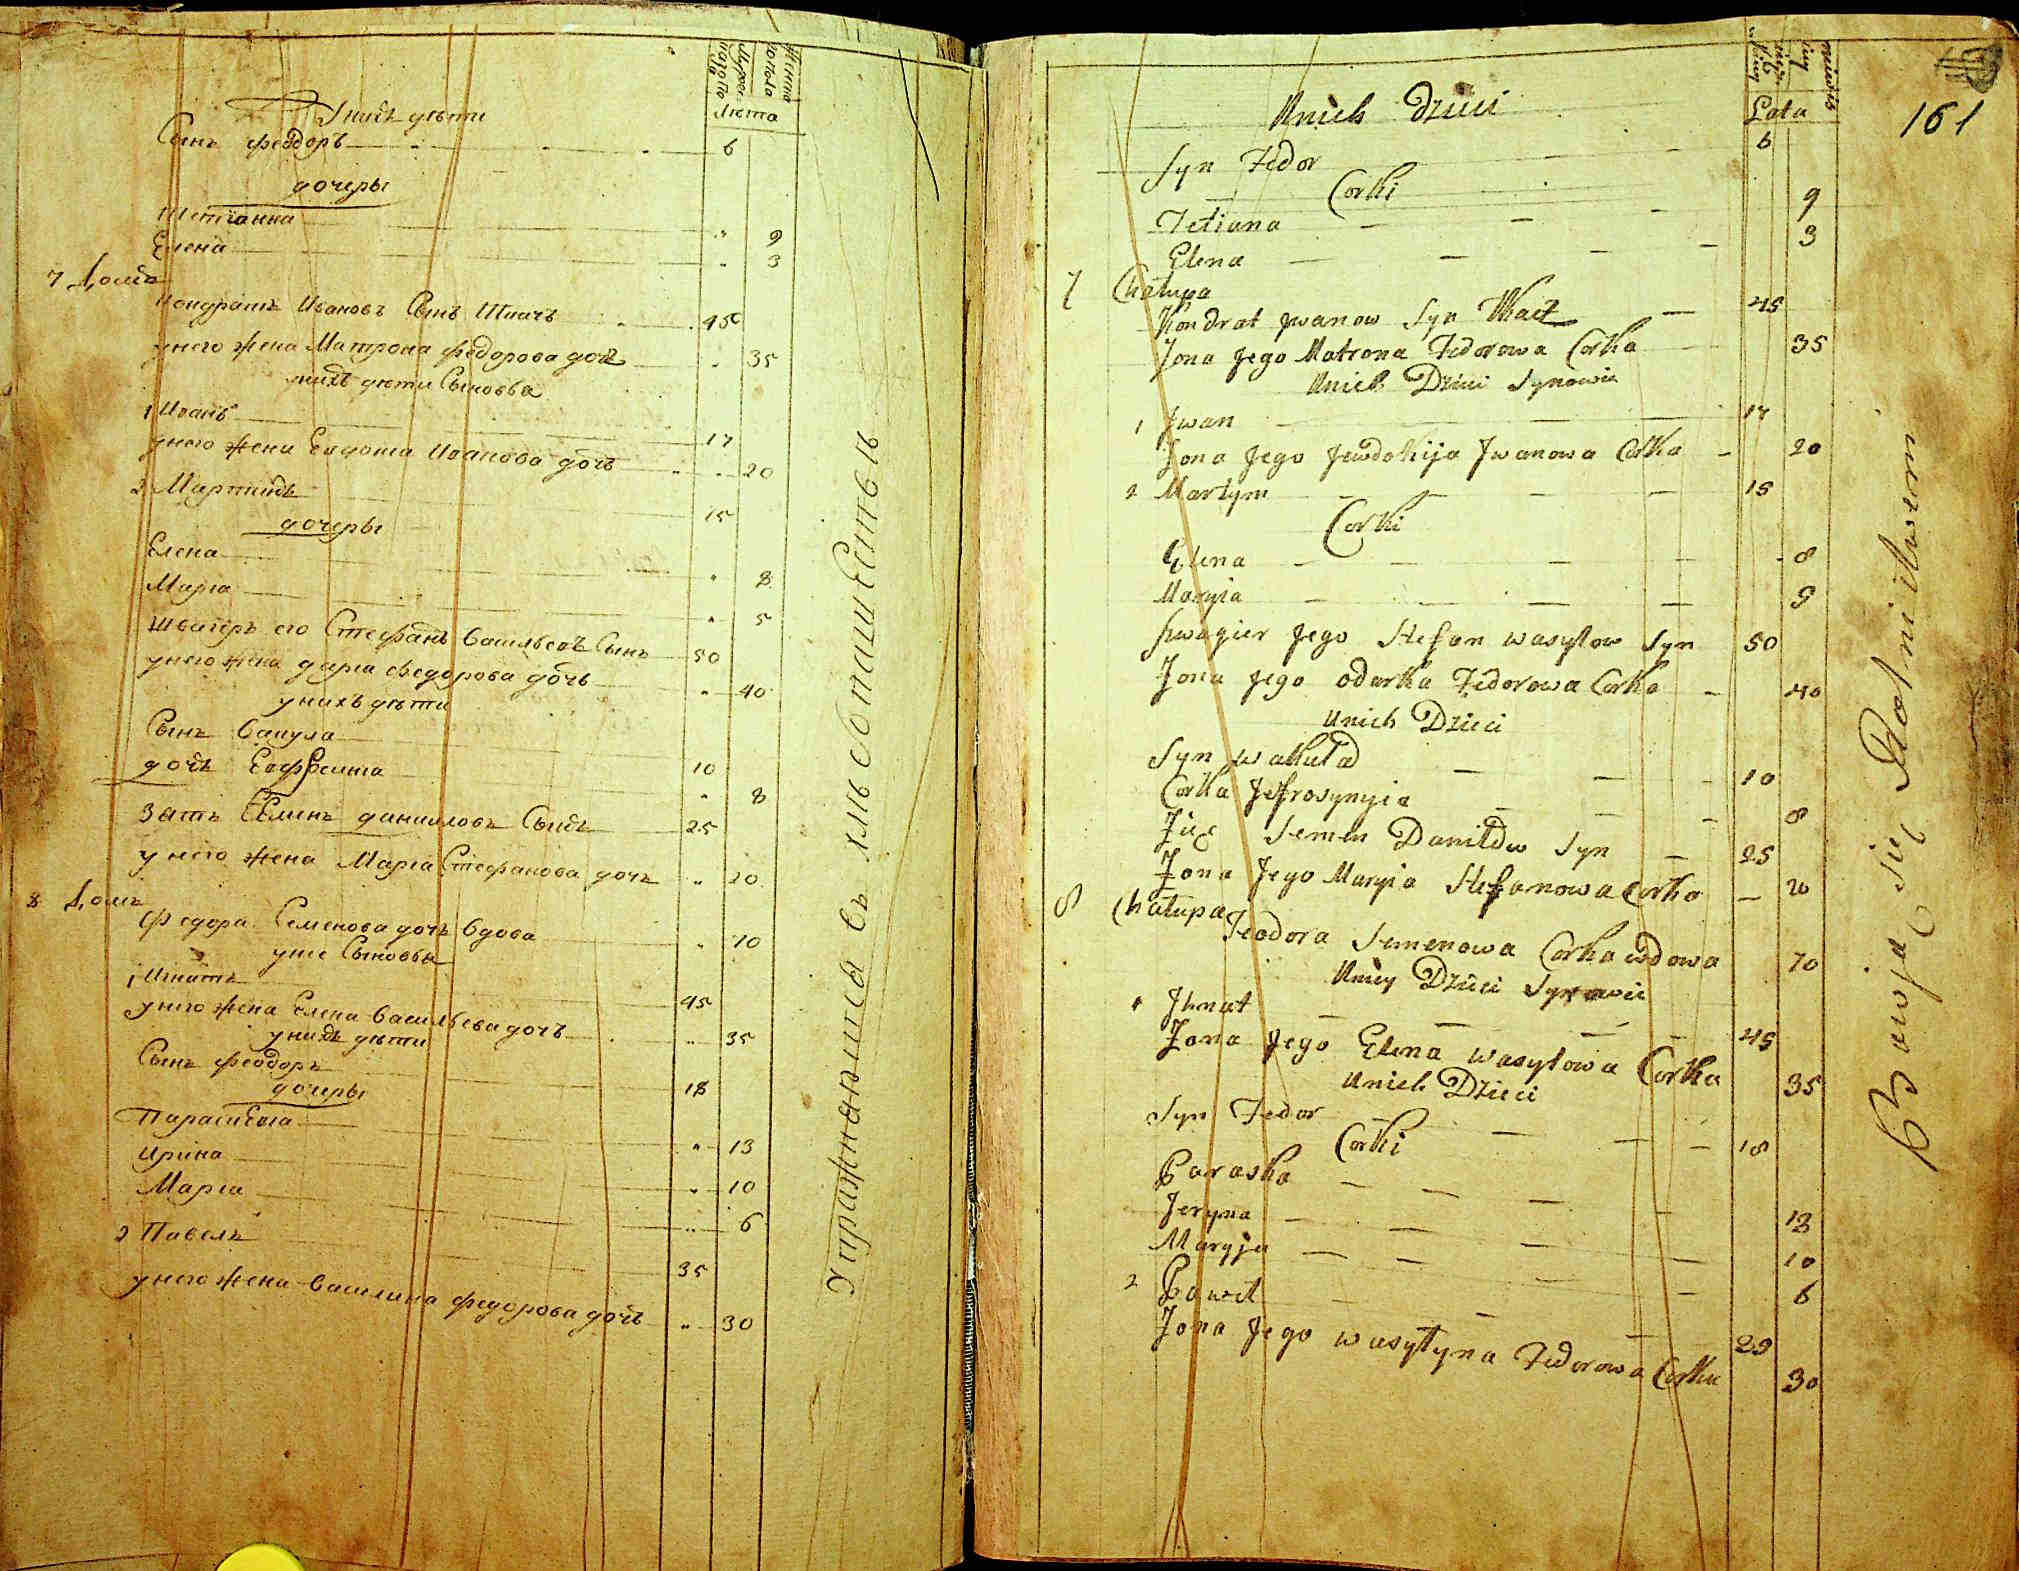 У нихъ дѣти
Сынъ Феодоръ 6
дочеры
Тетіанна " 9
Елена " 3
7 Домъ
Кондратъ Ивановъ Сынъ Ткачъ 45
у него жена Матрона Федорова дочь " 35
у нихъ дѣти Сыновья
1 Иванъ 17
у него жена Евдокіа Иванова дочь " 20
2 Мартинъ 15
дочеры
Елена " 8
Маріа " 5
Швагеръ его Стефанъ Васильевъ Сынъ 50
у него жена Даріа Федорова дочь " 40
у нихъ дѣти
Сынъ Вакула 10
дочь Евфросина " 8
Зять Семенъ Даниловъ Сынъ 25
у него жена Маріа Стефанова дочь " 20
8 Домъ
Федора Семенова дочь Вдова " 70
у нее Сыновья
1 Игнатъ 45
у него жена Елена Васильева дочь " 35
у нихъ дѣти
Сынъ Феодоръ 18
дочеры
Параскева " 13
Ирина " 10
Маріа " 6
2 Павелъ 35
у него жена Василина Федорова дочь " 30
мужеска
женска
пола
Лѣта
Упражнаются въ хлѣбопашествѣ
161
Lata
Unich Dzieci
Syn Fedor 6
Corki
Tetiana 9
Elena 3
7 Chałupa
Kondrat Jwanow Syn Tkacz 45
Żona Jego Matrona Fedorowa Corka 35
Unich Dzieci Synowie
1 Jwan 17
Żona Jego Jewdokija Jwanowa Corka 20
2 Martyn 15
Corki
Elena 8
Maryia 5
Szwagier Jego Stefan Wasylow Syn 50
Żona Jego Odarka Fedorowa Corka 40
Unich Dzieci
Syn Wakuła 10
Corka Jefrosynyia 8
Zięć Semen Daniłow Syn 25
Żona Jego Maryia Stefanowa Corka 20
8 Chałupa
Teodora Semenowa Corka wdowa 70
Uniey Dzieci Synowie
1 Jhnat 45
Żona Jego Elena Wasylowa Corka 35
Unich Dzieci
Syn Fedor 18
Corki
Paraska 13
Jeryna 10
Maryja 6
2 Paweł 29
Żona Jego Wasylyna Fedorowa Corka 30
Bawją się Rolnictwem